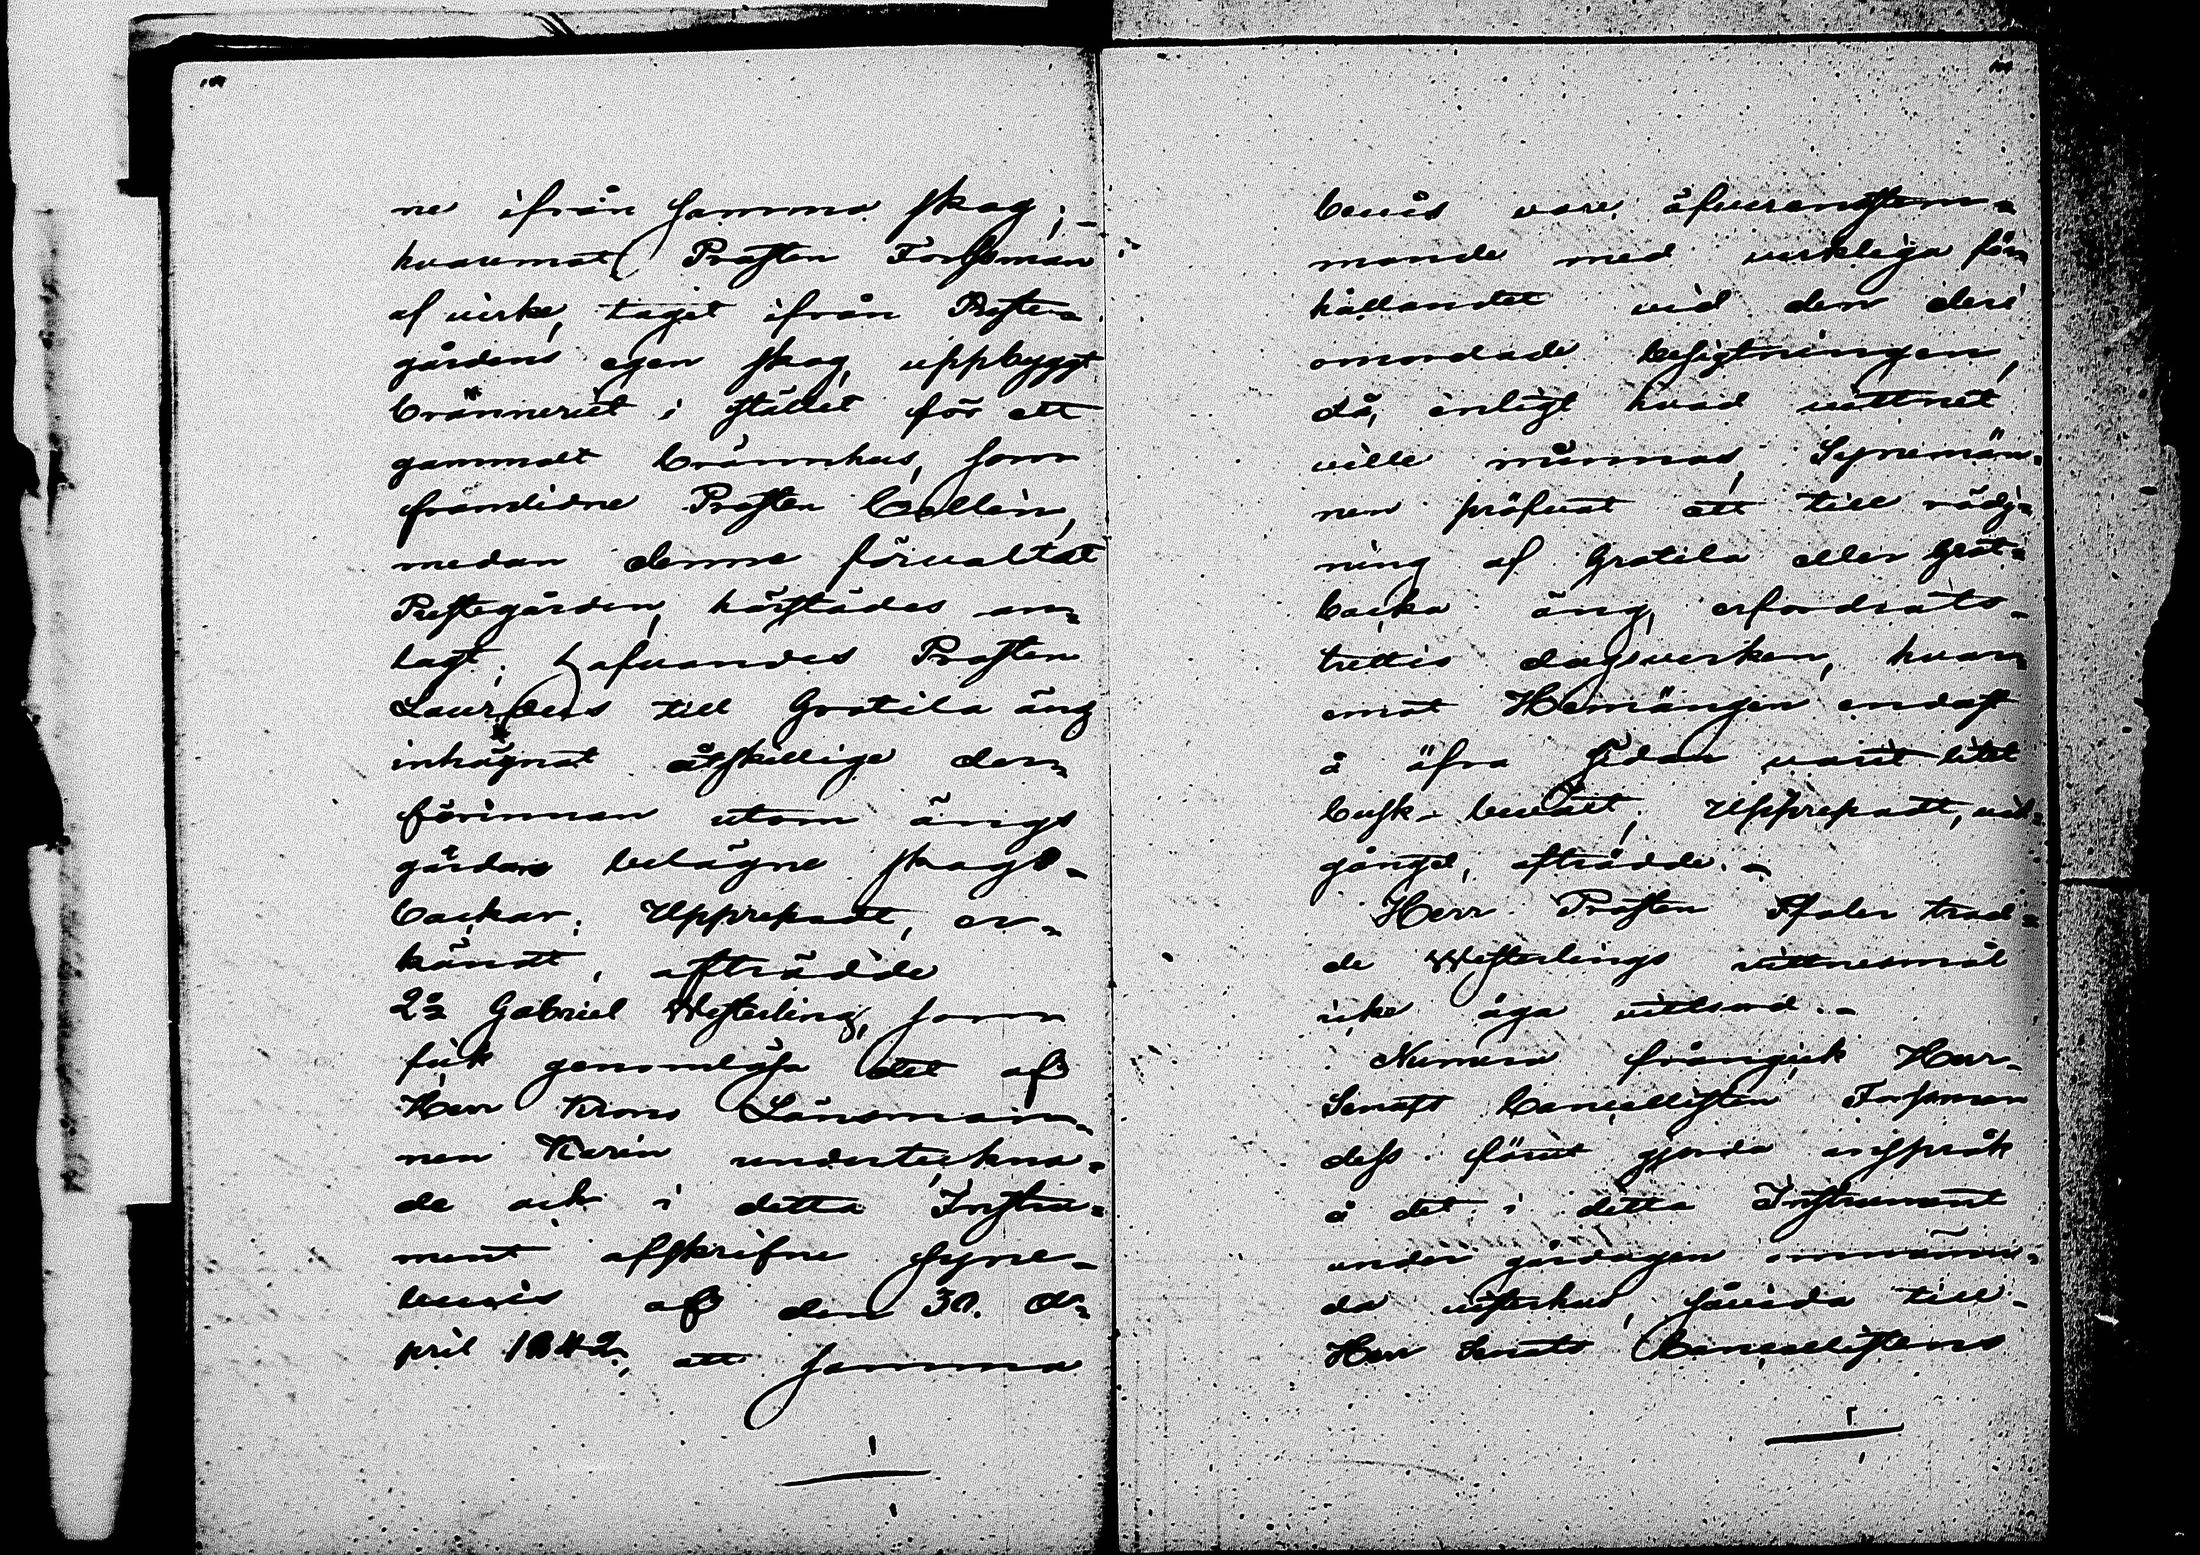 ne ifrån samma skog;-
hvaremot Prosten Forssman
af virke, taget ifrån Preste-
gårdens egen skog, uppbyggt
bränneriet i stället för ett
gammalt brännhus, som
framlidne Prosten Cællin,
medan denne förvaltat
Prestegården, härstädes an-
lagt; hafvandes Prosten
Laurœus till Grotila äng
inhägnat åtskillige der-
förinnan utom ängs
gården belägne skogs-
backar; Upprepadt, er-
kändt, afträdde
2o Gabriel Westerling, som
fick genomläsa det af
Herr Krono Länsman-
nen Kerin underteckna-
de och i detta Instru-
ment afskrifne syne-
bevis af den 30. A-
pril 1842, att samma
bevis vore öfverenstem-
mande med verkliga för-
hållandet vid den deri
omordade besigtningen,
då, enligt hvad vittnet
ville minnas, Synemän-
nen pröfvat att till rödj-
ning af Grotila eller Gröt-
backa äng, erfordrats
trettio dagsverken, hvar-
emot Hemängen endast
å öfra sidan varit litet
busk-beväxt; Upprepadt, ved-
gånget, afträdde.-
Herr Prosten Ståhle trod-
de Westerlings vittnesmål
icke äga vittsord.-
Numera frångick Herr
Senats Cancellisten Forssman
dess förut gjorda anspråk
å det i detta Instrument
under gårdagen omnämn-
da visterhus, såvida till
Herr Senats Cancellistens